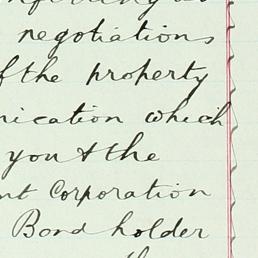 negotiations
f the property
nication which
you & the
nt Corporation
Bond holder